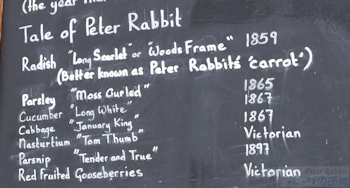 (the year
Tale of Peter Rabbit
Radish "Long Scarlet" or "Woods Frame" 1859
(Better known as Peter Rabbit's 'carrot')
Parsley "Moss Curled" 1865
Cucumber "Long White" 1867
Cabbage "January King" 1867
Nasturtium "Tom Thumb" Victorian
Parsnip "Tender and True" 1897
Red Fruited Gooseberries Victorian